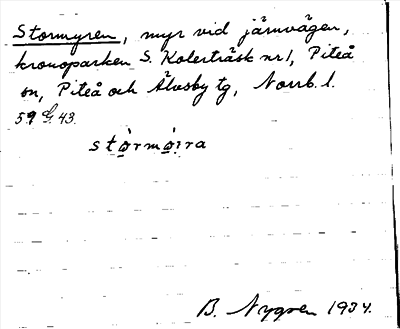 Stormyren, myr vid järnvägen,
kronoparken S. Kolerträsk nr 1, Piteå
sn, Piteå och Älvsby tg, Norrb. l.
59 G. 43.
stòrmøira
B. Nygren 1934.